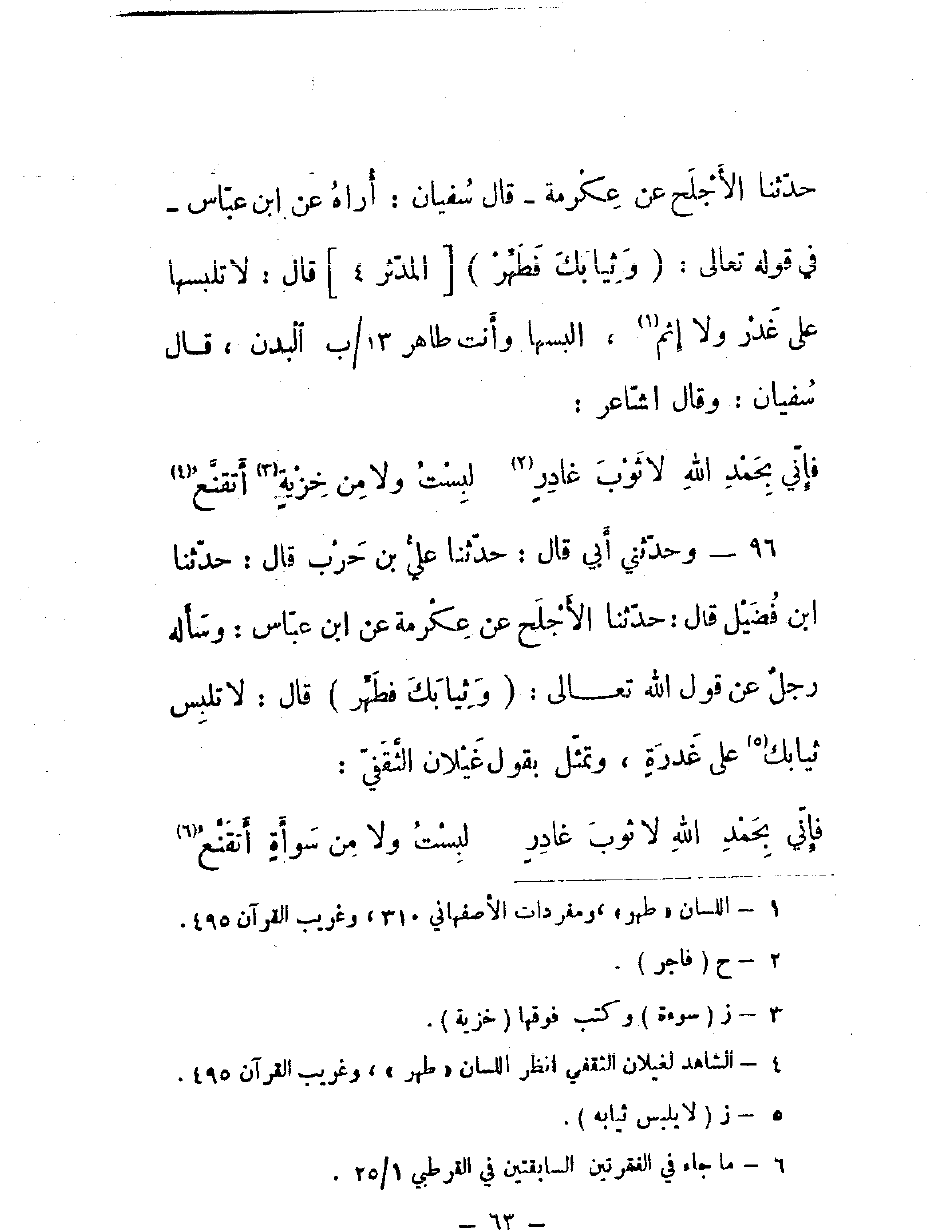 حدّثنا الأَجْلَح عن عِكْرمة ـ قال سُفيان : أُراهُ عن ابن عبّاس ـ
في قوله تعالى : ( وَثِيابَكَ فَطَهِّرْ ) [ المدّثر ٤ ] قال : لا تلبسها
على غَدْر ولا إثم(١) ، البسها وأنت طاهر ١٣/ب البدن ، قال
سُفيان : وقال الشاعر :
فإنّي بِحَمْدِ اللهِ لا ثَوْبَ غادِرٍ(٢) لبِسْتُ ولا مِن خِزْيةٍ(٣) أَتقنَّعُ(٤)
٩٦ ـ وحدّثني أَبي قال : حدّثنا عليُّ بن حَرْب قال : حدّثنا
ابن فُضَيْل قال : حدّثنا الأَجْلَح عن عِكْرمة عن ابن عبّاس : وسَأله
رجلٌ عن قول الله تعالى : ( وَثيابَكَ فطَهِّر ) قال : لا تلبِس
ثيابك(٥) على غَدرَةٍ ، وتمثّل بقول غَيْلان الثَّقَفيّ :
فإنّي بِحَمْدِ اللهِ لا ثوبَ غادِرٍ لبِسْتُ ولا مِن سَوأَةٍ أَتقَنَّعُ(٦)
١ ـ اللسان « طهر » ، ومفردات الأصفهاني ٣١٠ ، وغريب القرآن ٤٩٥ .
٢ ـ ح ( فاجر ) .
٣ ـ ز ( سوءة ) وكتب فوقها ( خزية ) .
٤ ـ الشاهد لغيلان الثقفي انظر اللسان « طهر » ، وغريب القرآن ٤٩٥ .
٥ ـ ز ( لا يلبس ثيابه ) .
٦ ـ ما جاء في الفقرتين السابقتين في القرطبي ٢٥/١ .
ـ ٦٣ ـ